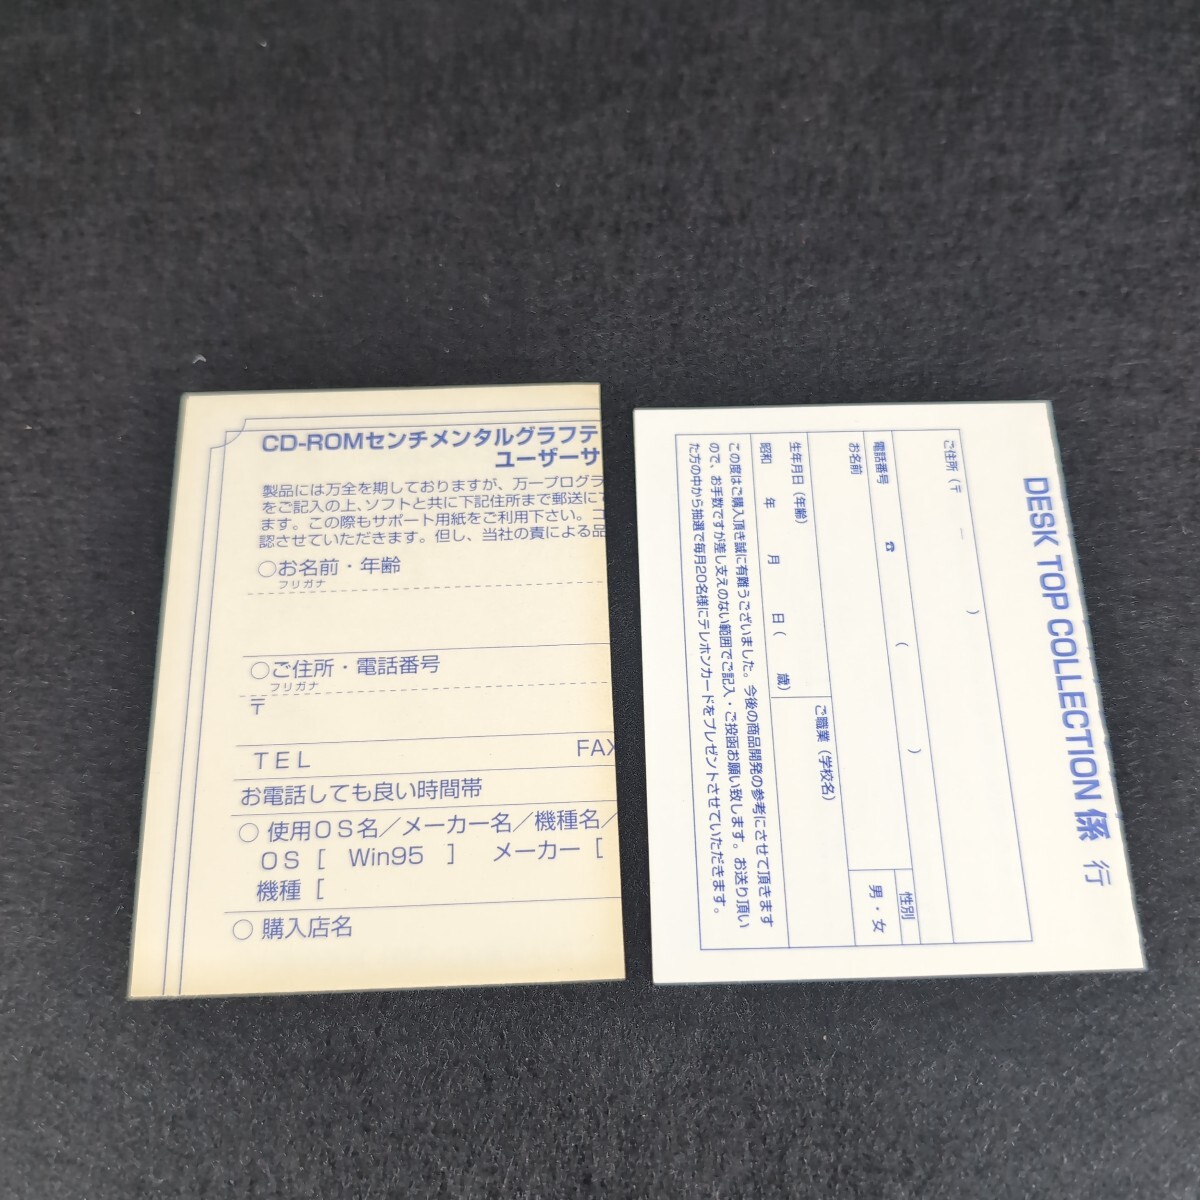 CD-ROMセンチメンタルグラフテ
ユーザーサ
製品には万全を期しておりますが、万一プログラ
をご記入の上、ソフトと共に下記住所まで郵送にて
ます。この際もサポート用紙をご利用下さい。コ
認させていただきます。但し、当社の責による品
○お名前・年齢
フリガナ
○ご住所・電話番号
フリガナ
〒
TEL FAX
お電話しても良い時間帯
○ 使用OS名／メーカー名／機種名／
OS [ Win95 ] メーカー [
機種 [
○ 購入店名
DESK TOP COLLECTION 係 行
ご住所（〒 － ）
電話番号 ☎ （ ）
性別
お名前
男・女
生年月日（年齢）
ご職業（学校名）
昭和 年 月 日（ 歳）
この度はご購入頂き誠に有難うございました。今後の商品開発の参考にさせて頂きます
ので、お手数ですが差し支えのない範囲でご記入・ご投函お願い致します。お送り頂い
た方の中から抽選で毎月20名様にテレホンカードをプレゼントさせていただきます。